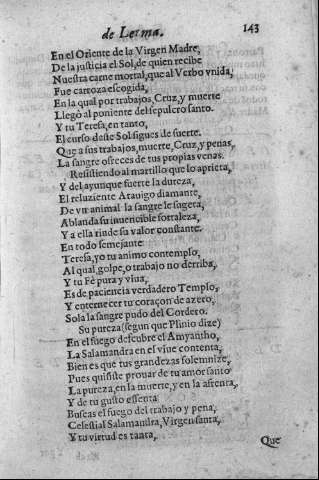 de Lerma. 143
En el Oriente de la Virgen Madre,
De la justicia el Sol, de quien recibe
Nuestra carne mortal, que al Verbo vnida,
Fue carroza escogida,
En la qual por trabajos, Cruz, y muerte
Llegò al poniente del sepulcro santo.
Y tu Teresa, en tanto,
El curso deste Sol sigues de suerte.
Que a sus trabajos, muerte, Cruz, y penas,
La sangre ofreces de tus propias venas.
Resistiendo al martillo que lo aprieta,
Y del ayunque fuerte la dureza,
El reluziente Atauigo diamante,
De vn animal la sangre le sugeta,
Ablanda su inuencible fortaleza,
Y a ella rinde su valor constante.
En todo semejante
Teresa, yo tu animo contemplo,
Al qual, golpe, o trabajo no derriba,
Y tu Fè pura y viua,
Es de paciencia verdadero Templo,
Y enternecer tu coraçon de azero,
Sola la sangre pudo del Cordero.
Su pureza (segun que Plinio dize)
En el fuego descubre el Amyantho,
La Salamandra en el viue contenta,
Bien es que tus grandezas solemnize,
Pues quisiste prouar de tu amor santo
La pureza, en la muerte, y en la afrenta,
Y de tu gusto essenta
Buscas el fuego del trabajo y pena,
Celestial Salamandra, Virgen santa,
Y tu virtud es tanta,
Que